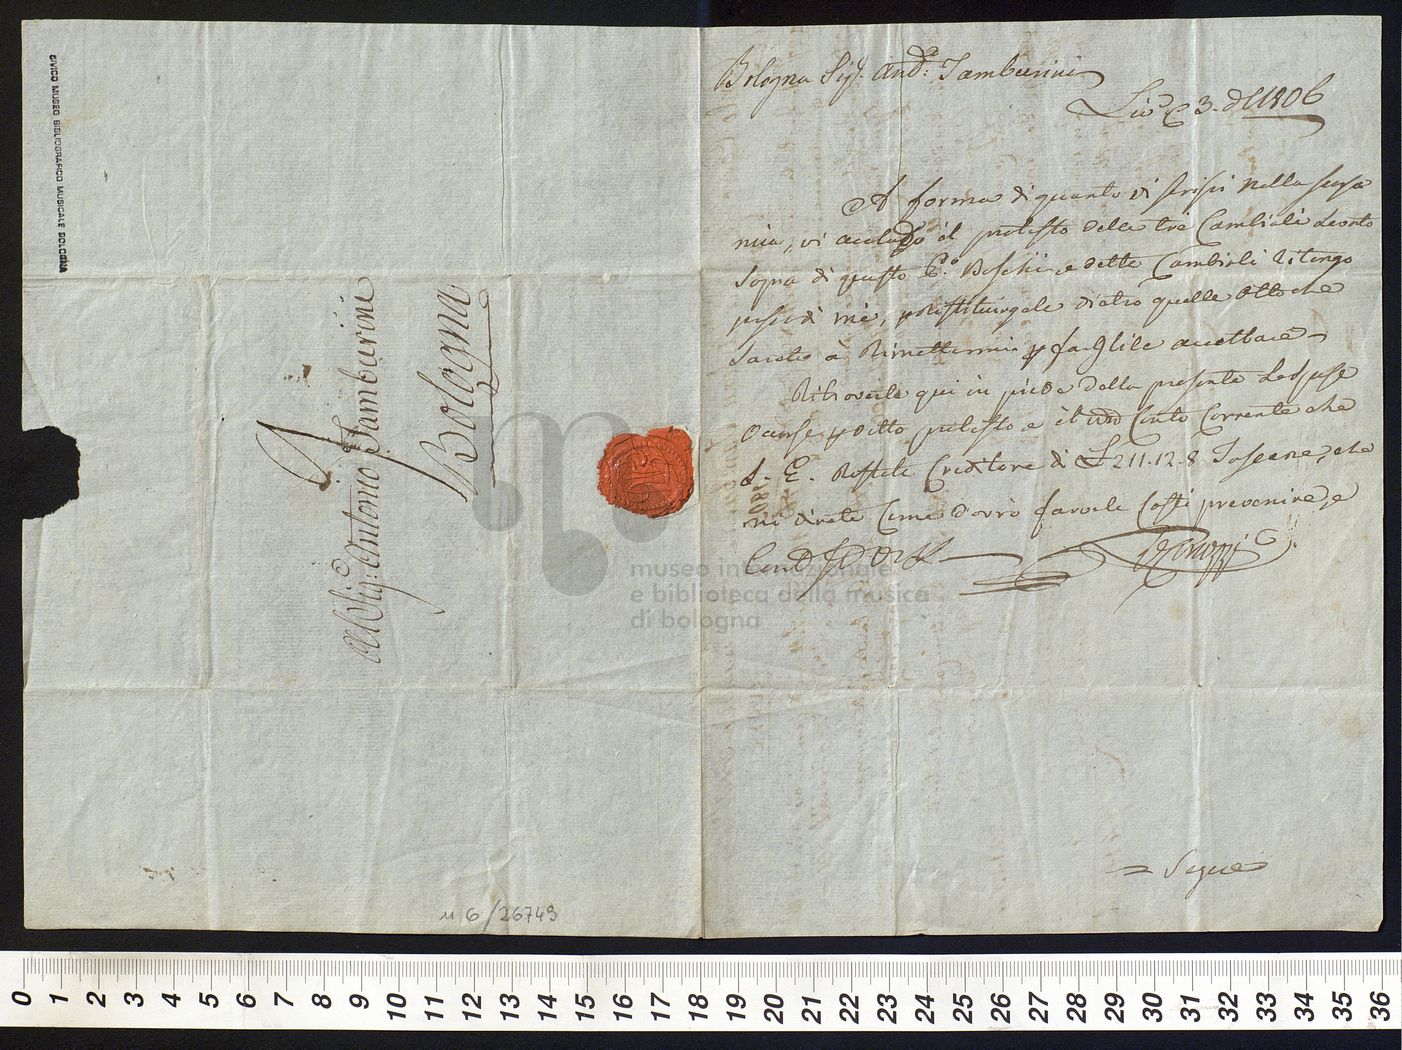 CIVICO MUSEO BIBLIOGRAFICO MUSICALE BOLOGNA
Al Sig: Antonio Tamburini
Bologna
n 6/26749
Bologna Sig. Ant: Tamburini
Liv 3. 1806
A forma di quanto vi scrissi nella scorsa
mia, vi accludo il protesto delle tre Cambiali
sopra di questo Beschi, e dette Cambiali ritengo
presso di me, dietro quelle otto che
sarete à Rimettermi p fargliele accettare
Ritroverete qui in piede della presente le spese
occorse p detto protesto e il Conto Corrente che
S. E. Restate Creditore di £ 211.12.8 Toscane, che
mi direte come dovrò farvele costì pervenire, e
= Segue
museo internazionale
e biblioteca della musica
di bologna
0 1 2 3 4 5 6 7 8 9 10 11 12 13 14 15 16 17 18 19 20 21 22 23 24 25 26 27 28 29 30 31 32 33 34 35 36